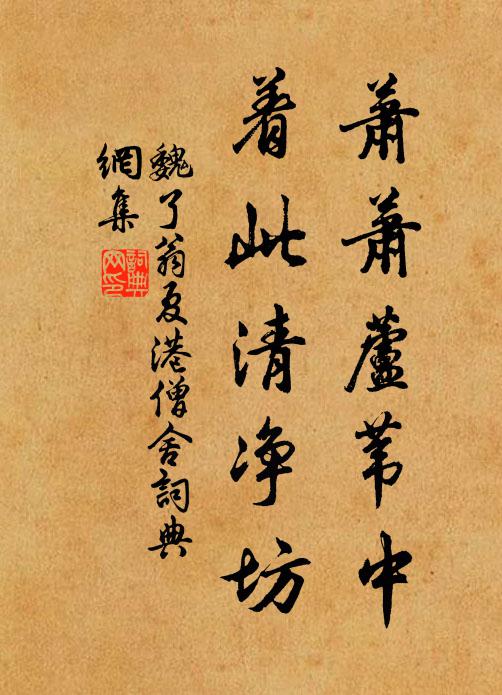 蕭蕭蘆葦中
着此清净坊
魏了翁夏港僧舍詞典
網集
詞典網印